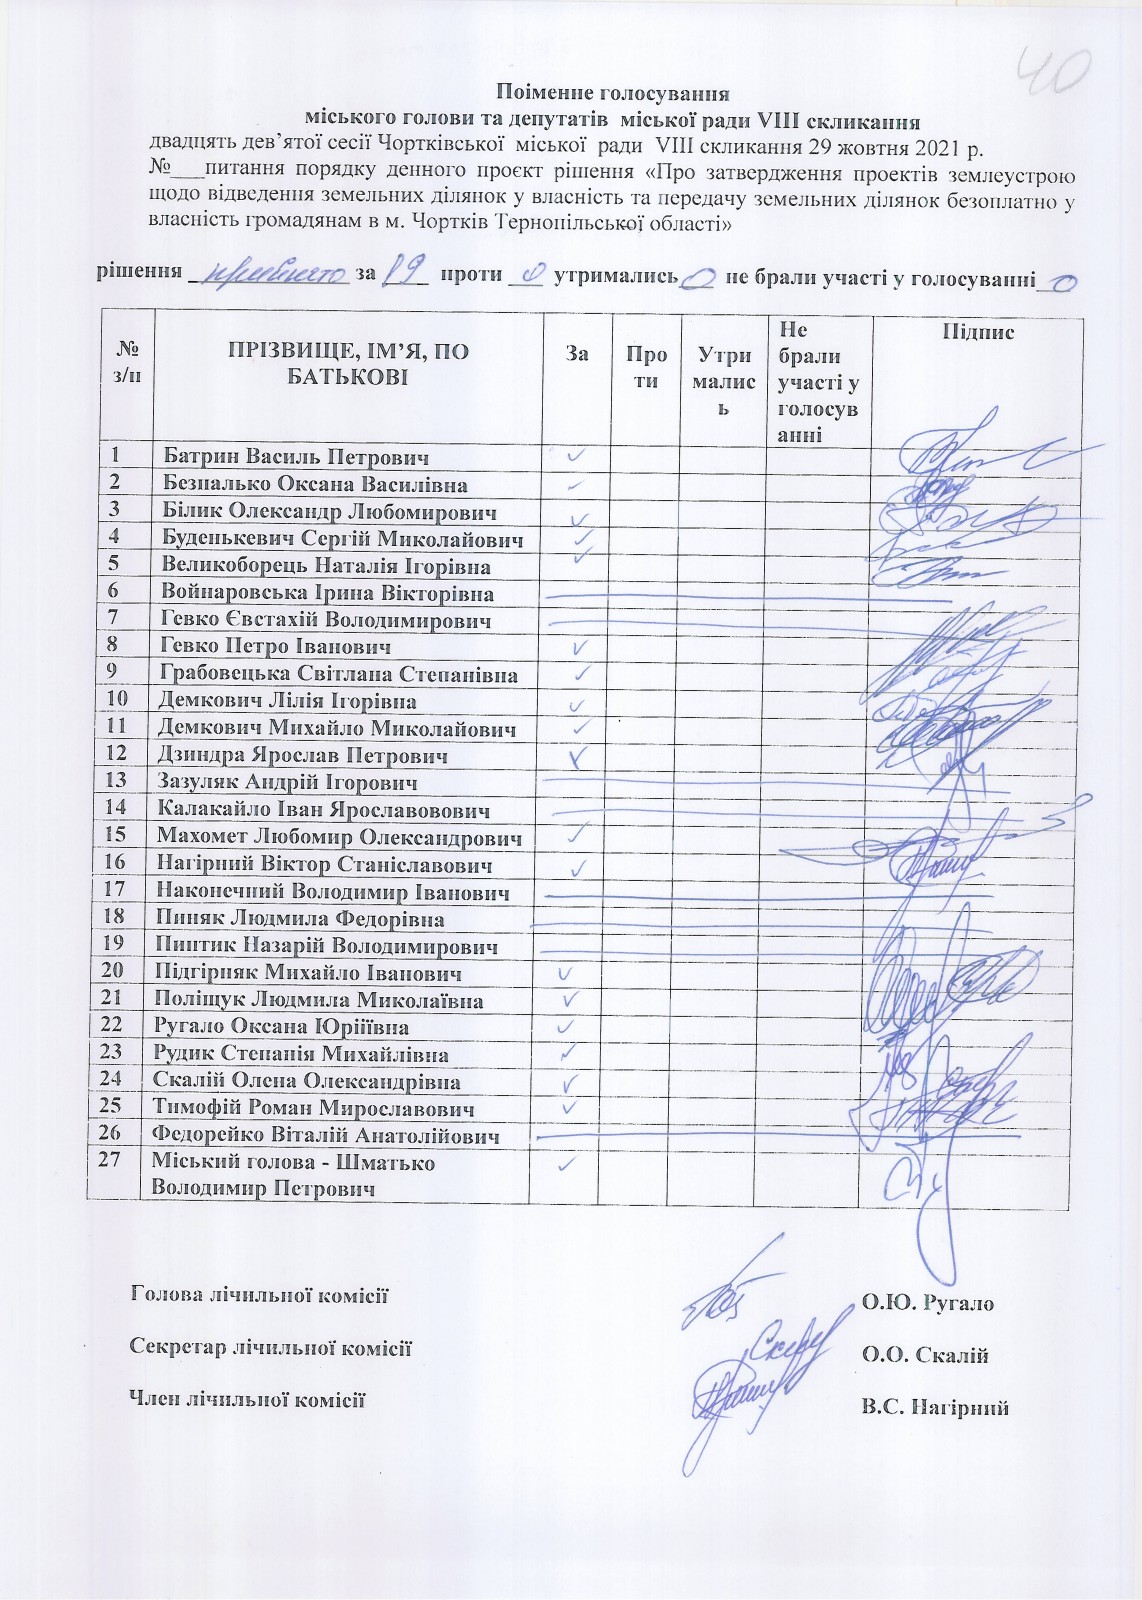 40
Поіменне голосування
міського голови та депутатів міської ради VIII скликання
двадцять дев’ятої сесії Чортківської міської ради VIII скликання 29 жовтня 2021 р.
№___питання порядку денного проєкт рішення «Про затвердження проектів землеустрою
щодо відведення земельних ділянок у власність та передачу земельних ділянок безоплатно у
власність громадянам в м. Чортків Тернопільської області»
рішення прийнято за 19 проти 0 утримались 0 не брали участі у голосуванні 0
№ з/п ПРІЗВИЩЕ, ІМ’Я, ПО БАТЬКОВІ За Про ти Утри малис ь Не брали участі у голосув анні Підпис
1 Батрин Василь Петрович ✓
2 Безпалько Оксана Василівна ✓
3 Білик Олександр Любомирович ✓
4 Буденькевич Сергій Миколайович ✓
5 Великоборець Наталія Ігорівна ✓
6 Войнаровська Ірина Вікторівна
7 Гевко Євстахій Володимирович
8 Гевко Петро Іванович ✓
9 Грабовецька Світлана Степанівна ✓
10 Демкович Лілія Ігорівна ✓
11 Демкович Михайло Миколайович ✓
12 Дзиндра Ярослав Петрович ✓
13 Зазуляк Андрій Ігорович
14 Калакайло Іван Ярославовович
15 Махомет Любомир Олександрович ✓
16 Нагірний Віктор Станіславович ✓
17 Наконечний Володимир Іванович
18 Пиняк Людмила Федорівна
19 Пинтик Назарій Володимирович
20 Підгірняк Михайло Іванович ✓
21 Поліщук Людмила Миколаївна ✓
22 Ругало Оксана Юріїївна ✓
23 Рудик Степанія Михайлівна ✓
24 Скалій Олена Олександрівна ✓
25 Тимофій Роман Мирославович ✓
26 Федорейко Віталій Анатолійович
27 Міський голова - Шматько ✓
Володимир Петрович
Голова лічильної комісії О.Ю. Ругало
Секретар лічильної комісії О.О. Скалій
Член лічильної комісії В.С. Нагірний